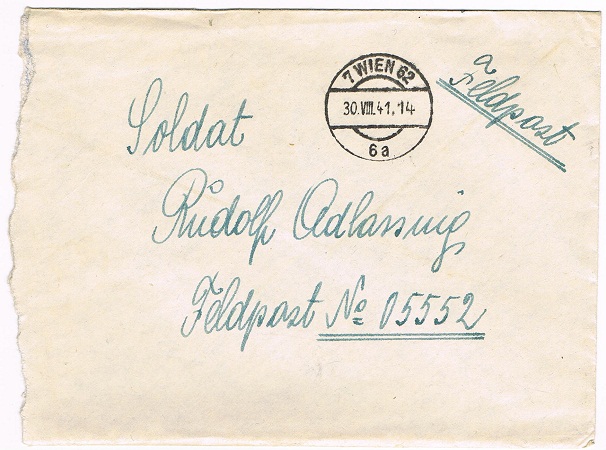 7 WIEN 62
30.VIII.41.14
6a
Feldpost
Soldat
Rudolf Adlassnig
Feldpost No 05552